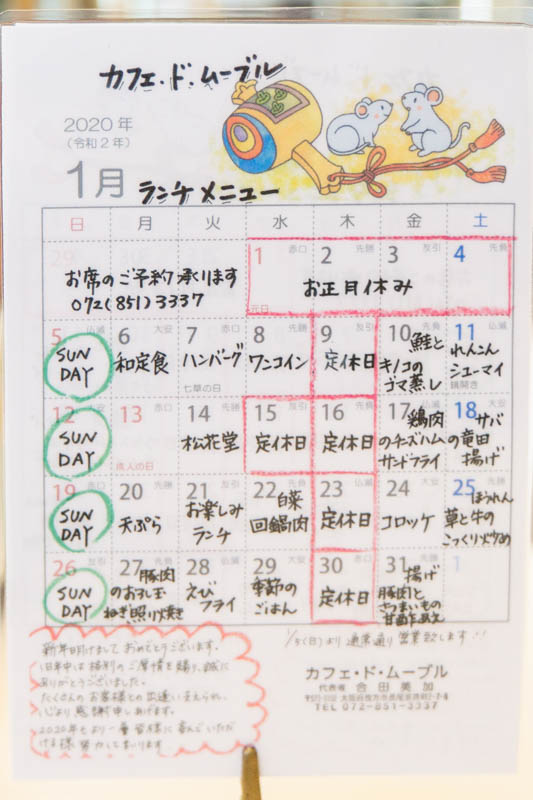 カフェ・ド・ムーブル
2020年
(令和2年)
1月 ランチメニュー
日 月 火 水 木 金 土
1 赤口 2 先勝 3 友引 4 先負
元日
お席のご予約承ります
072(851)3337
お正月休み
5 仏滅 6 大安 7 赤口 8 先勝 9 友引 10 先負 11 仏滅
SUN
DAY
和定食
ハンバーグ
七草の日
ワンコイン
定休日
鮭と
キノコの
ゴマ蒸し
れんこん
シューマイ
鏡開き
12 大安 13 赤口 14 先勝 15 友引 16 先負 17 仏滅 18 大安
SUN
DAY
成人の日
松花堂
定休日
定休日
鶏肉
のチーズハム
サンドフライ
サバ
の竜田
揚げ
19 赤口 20 先勝 21 友引 22 先負 23 仏滅 24 大安 25 先勝
SUN
DAY
天ぷら
お楽しみ
ランチ
白菜
回鍋肉
定休日
コロッケ
ほうれん
草と牛の
こっくり炒め
26 友引 27 先負 28 仏滅 29 大安 30 赤口 31 先勝
SUN
DAY
豚肉
のお好み玉
ねぎ照り焼き
えび
フライ
季節の
ごはん
定休日
揚げ
豚肉と
さつまいもの
1/5(日)より通常通り営業致します!!
新年明けましておめでとうございます。
旧年中は格別のご厚情を賜り、誠に
ありがとうございました。
たくさんのお客様との出逢い支えられ、
心より感謝申しあげます。
2020年もより一層皆様に喜んでいただ
ける様努力してまいります。
カフェ・ド・ムーブル
代表者 合田美加
TEL 072-851-3337